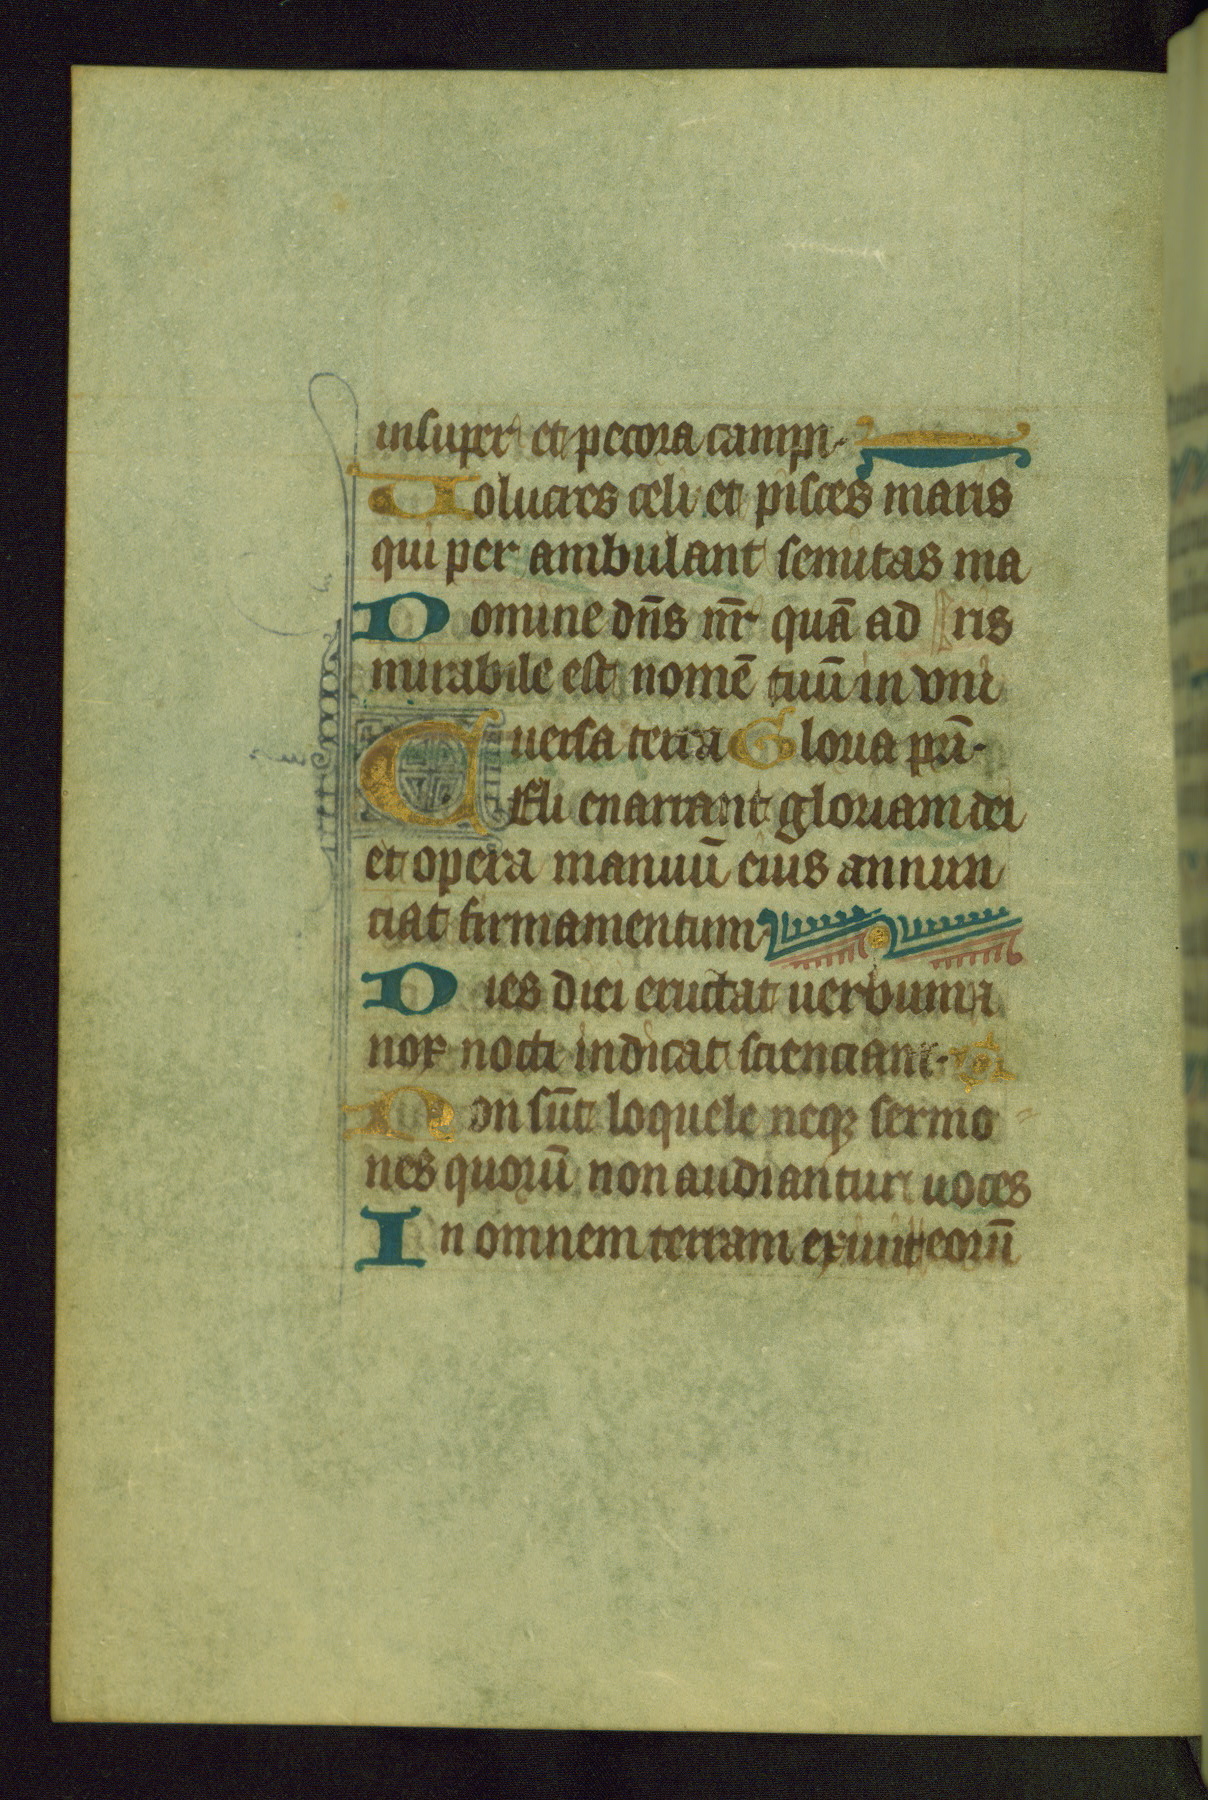 insuper et pecora campi.
Uolucres celi et pisces maris
qui per ambulant semitas ma
Domine dn̄s nr̄ quā ad ris
mirabile est nomē tuū in vni
uersa terra Gloria pr̄i.
CEli enarrant gloriam dei
et opera manuū eius annun
ciat firmamentum
Dies diei eructat uerbum ⁊
nox nocti indicat scienciam.
Non sūt loquele neqꝫ sermo
nes quorū non audiantur uoces
In omnem terram exiuit eorū